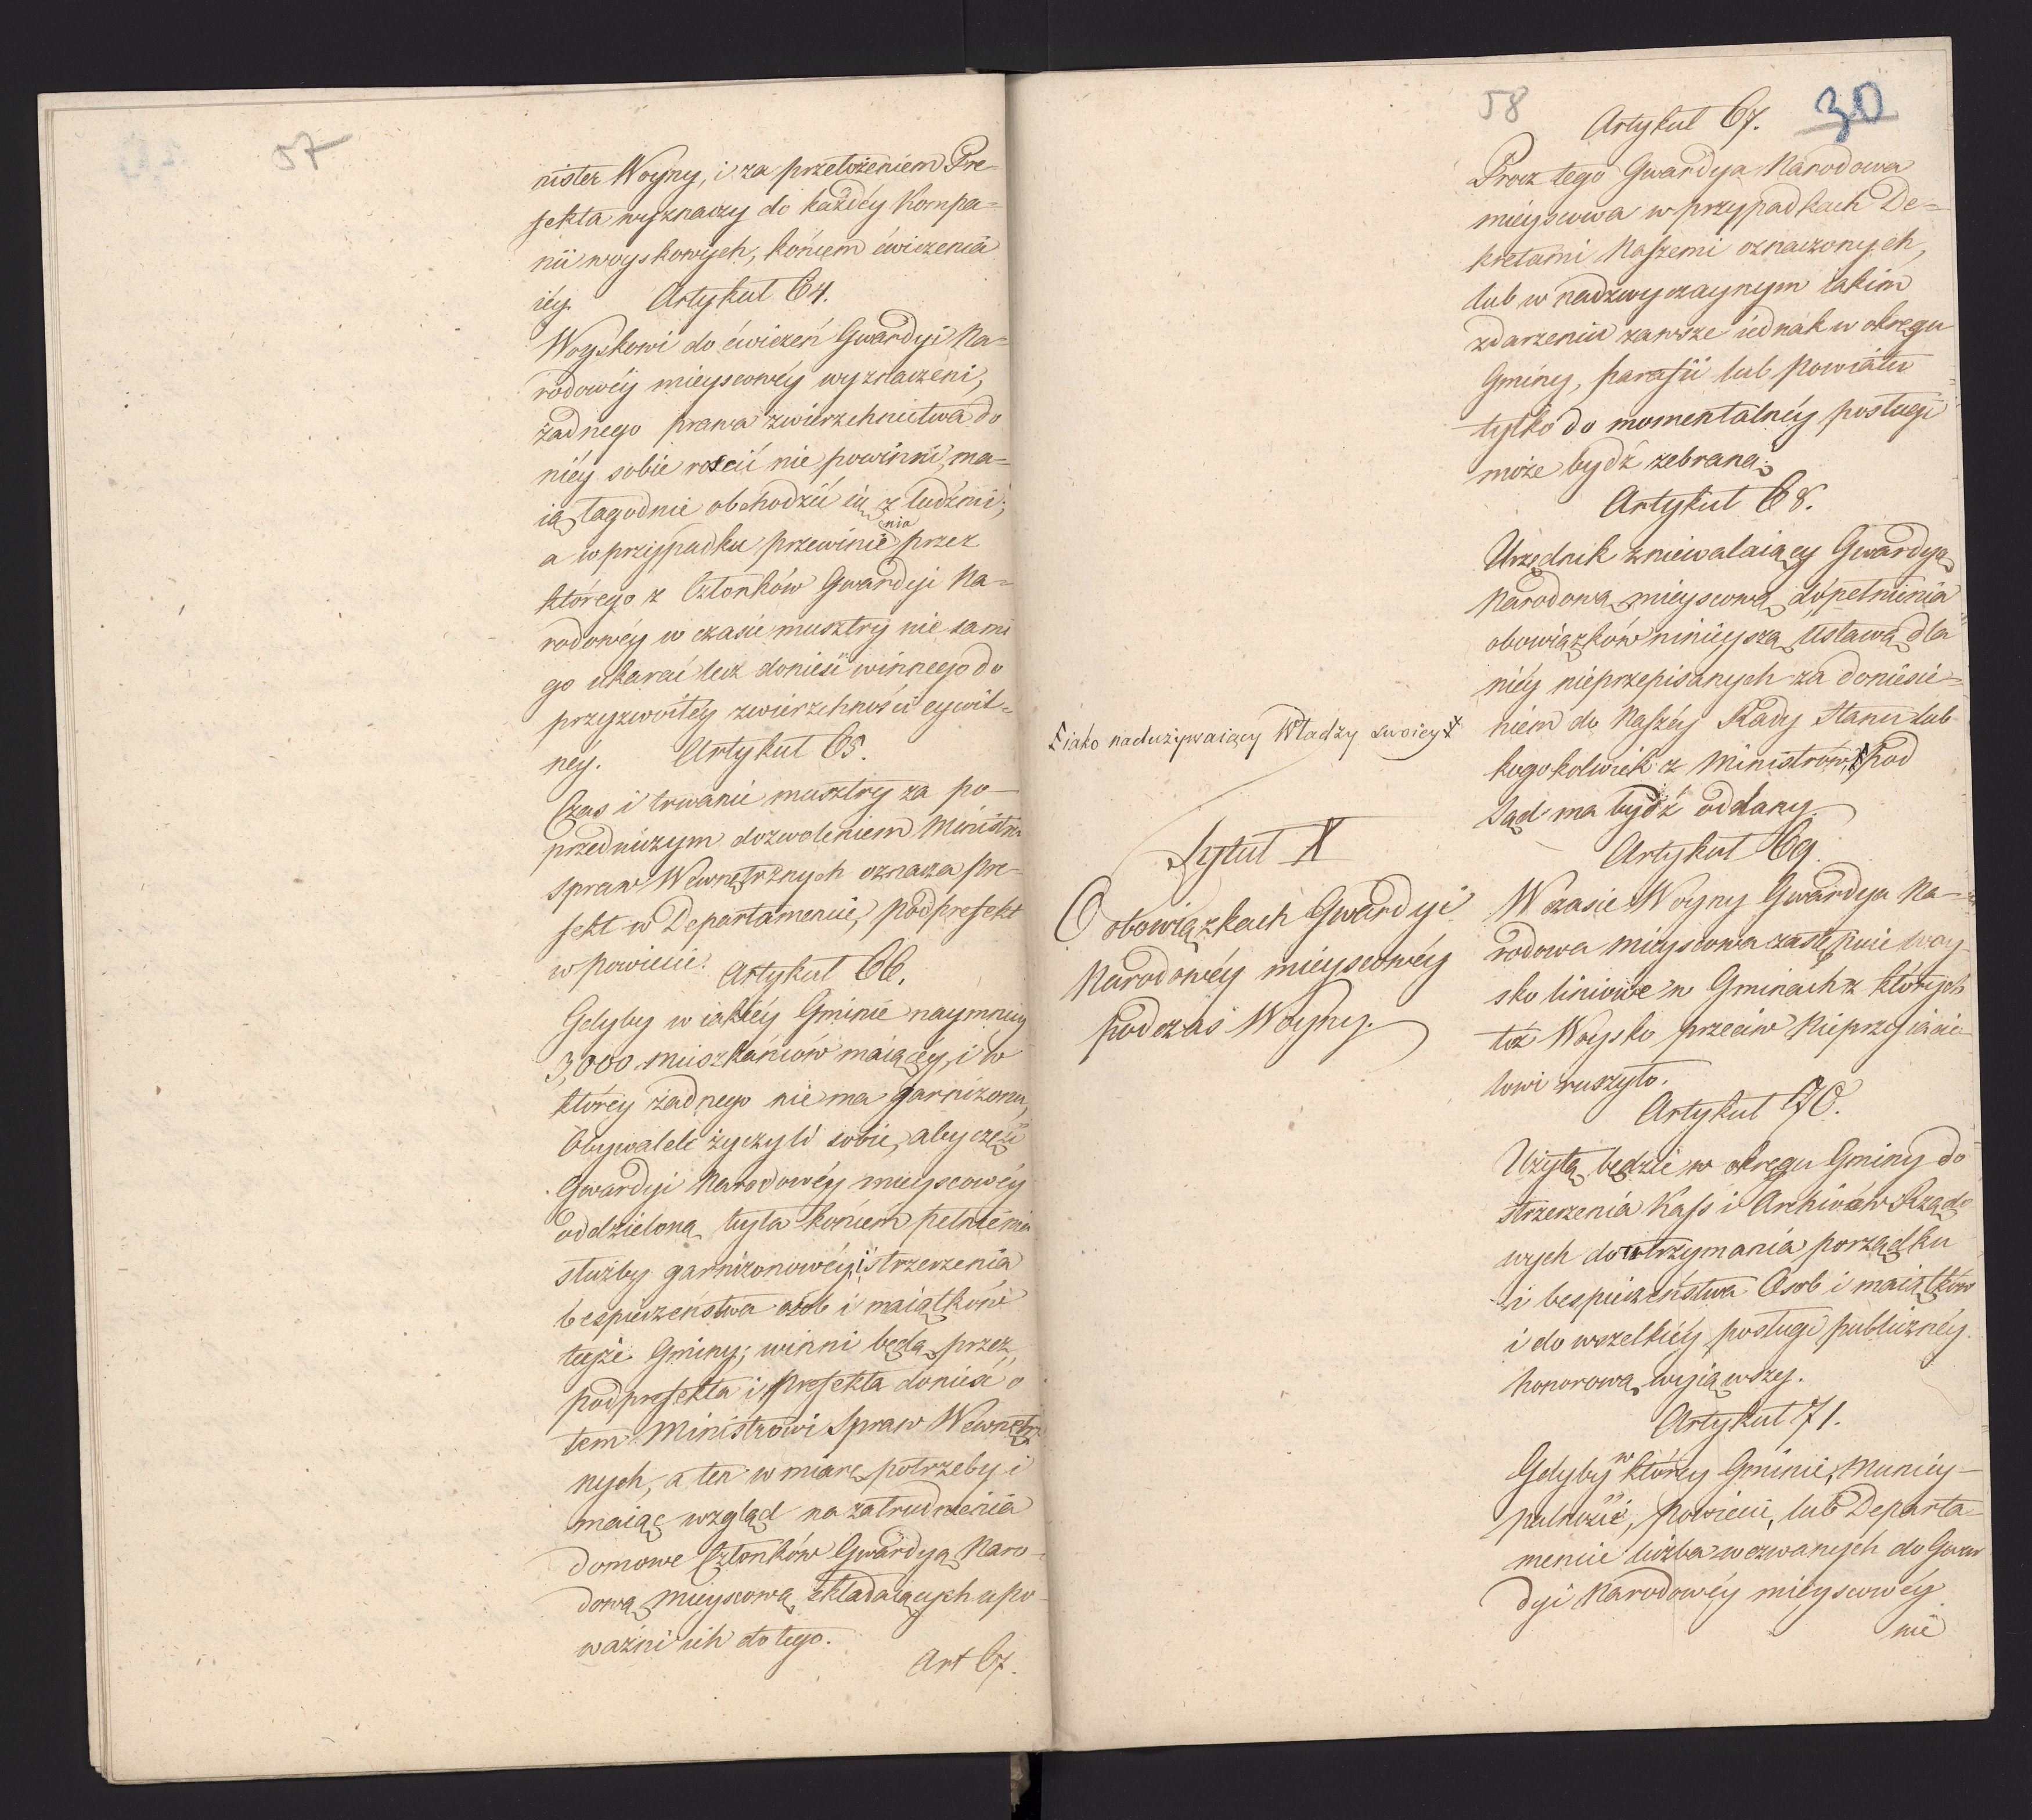 57
nister Woyny, i za przełożeniem Pre-
fekta wyznaczy do każdéy Kompa=
nii woyskowych, końcem ćwiczenia
iéy. Artykuł 64.
Woyskowi do ćwiczeń Gwardyi Na=
rodowéy mieyscowéy wyznaczeni,
żadnego prawa zwierzchnictwa do
niéy sobie rościć nie powinni, ma=
ią łagodnie obchodzić się z ludźmi;
a w przypadku przewinienia przez
którego z Członków Gwardyi Na=
rodowéy w czasie musztry nie sami
go ukarać lecz donieść winnego do
przyzwoitéy zwierzchności cywil=
néy. Artykuł 65.
Czas i trwanie musztry za po-
przedniczym dozwoleniem Ministra
Spraw Wewnętrznych oznacza Pre-
fekt w Departamencie, Podprefekt
w powiecie. Artykuł 66.
Gdyby w iakiéy Gminie naymniéy
3,000 mieszkańców maiącéy, i w
któréy żadnego nie ma garnizonu,
Obywatele życzyli sobie, aby część
Gwardyi Narodowéy mieyscowéy
oddzieloną była końcem pełnienia
służby garnizonowéy, i strzeżenia
bespieczeństwa osób i maiątków
teyże Gminy; winni będą przez
podprefekta i Prefekta donieść o
tem Ministrowi Spraw Wewnętrz
nych, a ten w miarę potrzeby i
maiąc wzgląd na zatrudnienia
domowe Członków Gwardyą Naro-
dową Mieyscową składaiących upo-
ważni ich do tego.
Art 67.
58
30
Artykuł 67.
Procz tego Gwardya Narodowa
mieyscowa w przypadkach De=
kretami Naszemi oznaczonych,
lub w nadzwyczaynym takim
zdarzeniu zawsze iednak w okręgu
Gminy, parafii lub Powiatu
tylko do momentalnéy posługi
może bydź zebraną.
Artykuł 68.
Urzędnik zniewalaiący Gwardyą
Narodową mieyscową dopełnienia
obowiązków ninieyszą Ustawą dla
niéy nieprzepisanych za doniesie=
niem do Naszéy Rady Stanu lub
kogokolwiek z Ministrów, pod
Sąd ma bydź oddany.
iako nadużywaiący Władzy swoiéy
Tytuł X
O obowiązkach Gwardyi
Narodowéy mieyscowéy
podczas Woyny.
Artykuł 69.
W czasie Woyny Gwardya Na-
rodowa mieyscowa zastępuie woy
sko liniowe w Gminach z których
toż Woysko przeciw Nieprzyiacie
lowi ruszyło.
Artykuł 70.
Użytą będzie w okręgu Gminy do
strzeżenia Kass i Archiwów Rządo
wych do utrzymania porządku
i bespieczeństwa Osob i maiątków
i do wszelkiéy posługi publicznéy
honorową wyiąwszy.
Artykuł 71.
Gdyby w któréy Gminie, Municy-
palności, Powiecie, lub Departa-
mencie liczba wezwanych do Gwar
dyi Narodowéy mieyscowéy
nie